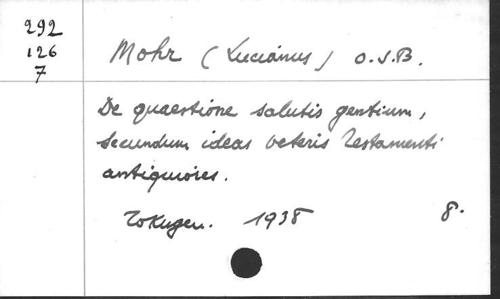 292
126
7
Mohr (Lucianus) O.S.B.
De quaestione salutis gentium,
secundum ideas veteris Testamenti
antiquiores.
Tokugen. 1938 8.